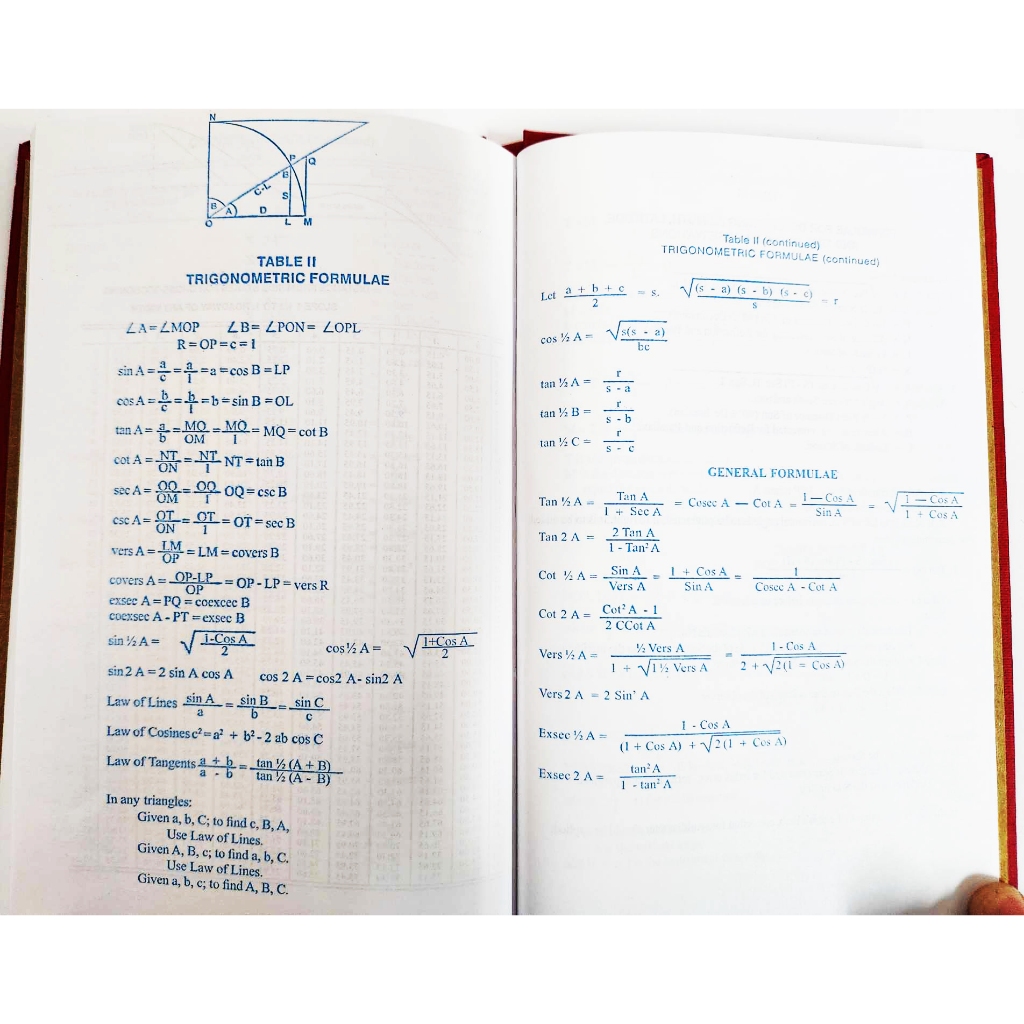 N
P Q
B
C-L
S
B A D
O L M
TABLE II
TRIGONOMETRIC FORMULAE
∠A=∠MOP ∠B= ∠PON= ∠OPL
R=OP=c=1
sin A = a/c = a/1 = a = cos B = LP
cos A = b/c = b/1 = b = sin B = OL
tan A = a/b = MQ/OM = MQ/1 = MQ = cot B
cot A = NT/ON = NT/1 NT = tan B
sec A = OQ/OM = OQ/1 OQ = csc B
csc A = OT/ON = OT/1 = OT = sec B
vers A = LM/OP = LM = covers B
covers A = OP-LP/OP = OP - LP = vers R
exsec A = PQ = coexcec B
coexsec A - PT = exsec B
sin ½ A = √(1-Cos A/2) cos ½ A = √(1+Cos A/2)
sin 2 A = 2 sin A cos A cos 2 A = cos2 A- sin2 A
Law of Lines sin A/a = sin B/b = sin C/c
Law of Cosines c² = a² + b² - 2 ab cos C
Law of Tangents a + b/a - b = tan ½ (A + B)/tan ½ (A - B)
In any triangles:
Given a, b, C; to find c, B, A,
Use Law of Lines.
Given A, B, c; to find a, b, C.
Use Law of Lines.
Given a, b, c; to find A, B, C.
Table II (continued)
TRIGONOMETRIC FORMULAE (continued)
Let a + b + c/2 = s. √((s - a) (s - b) (s - c)/s) = r
cos ½ A = √(s(s - a)/bc)
tan ½ A = r/s - a
tan ½ B = r/s - b
tan ½ C = r/s - c
GENERAL FORMULAE
Tan ½ A = Tan A/1 + Sec A = Cosec A — Cot A = 1 — Cos A/Sin A = √(1 — Cos A/1 + Cos A)
Tan 2 A = 2 Tan A/1 - Tan² A
Cot ½ A = Sin A/Vers A = 1 + Cos A/Sin A = 1/Cosec A - Cot A
Cot 2 A = Cot² A - 1/2 CCot A
Vers ½ A = ½ Vers A/1 + √(1 ½ Vers A) = 1 - Cos A/2 + √(2(1 = Cos A))
Vers 2 A = 2 Sin' A
Exsec ½ A = 1 - Cos A/(1 + Cos A) + √(2(1 + Cos A))
Exsec 2 A = tan² A/1 - tan² A